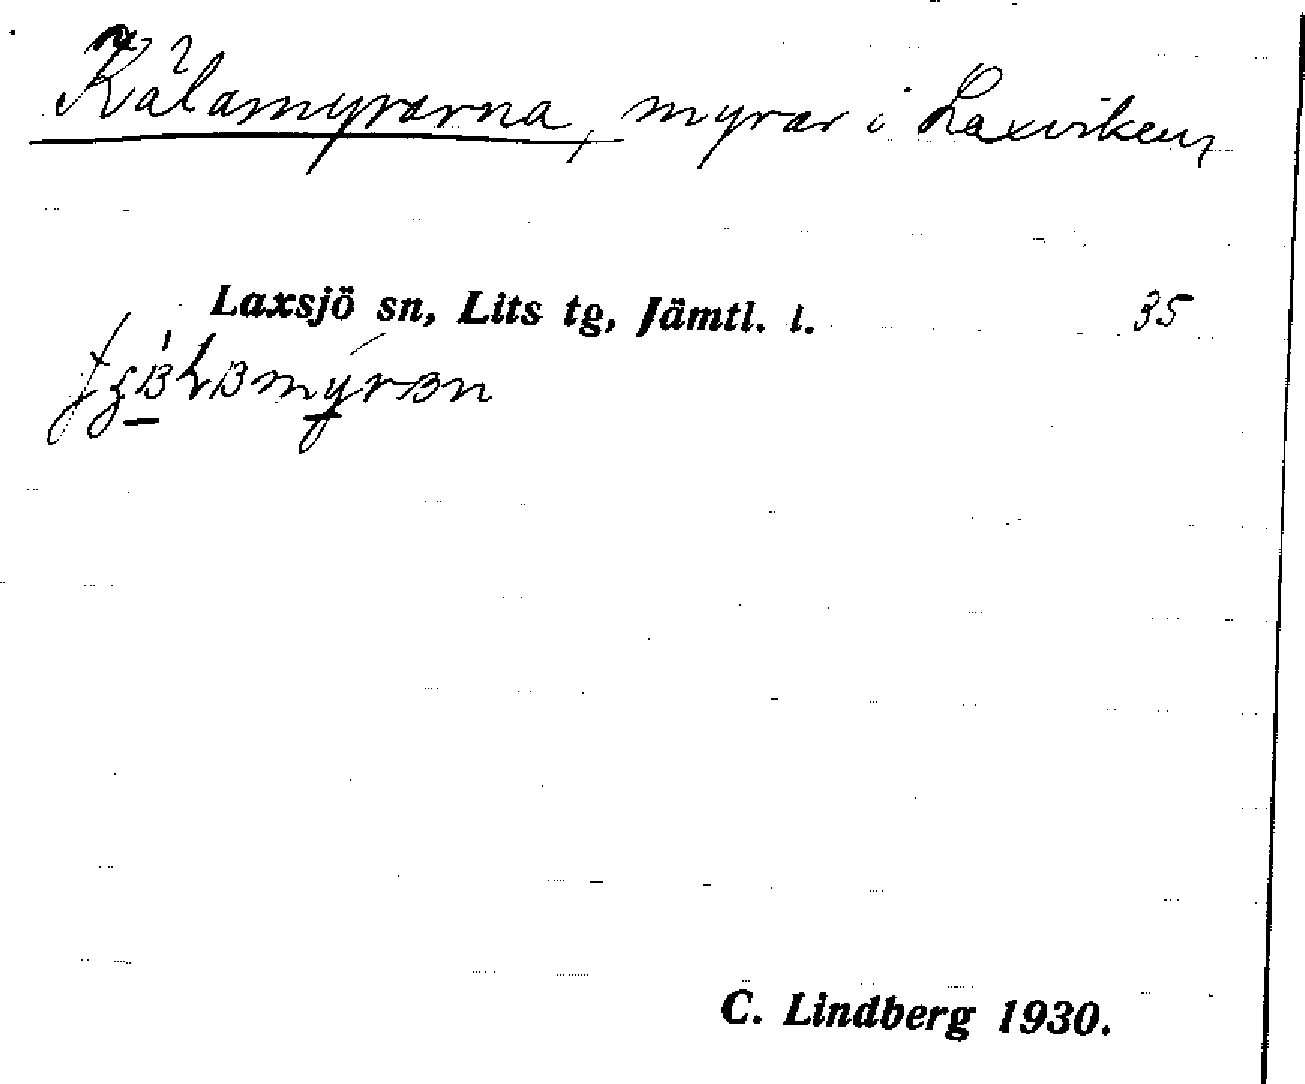 Kälamyrarna, myrar i Laxviken
Laxsjö sn, Lits tg, Jämtl. l. 35
C. Lindberg 1930.